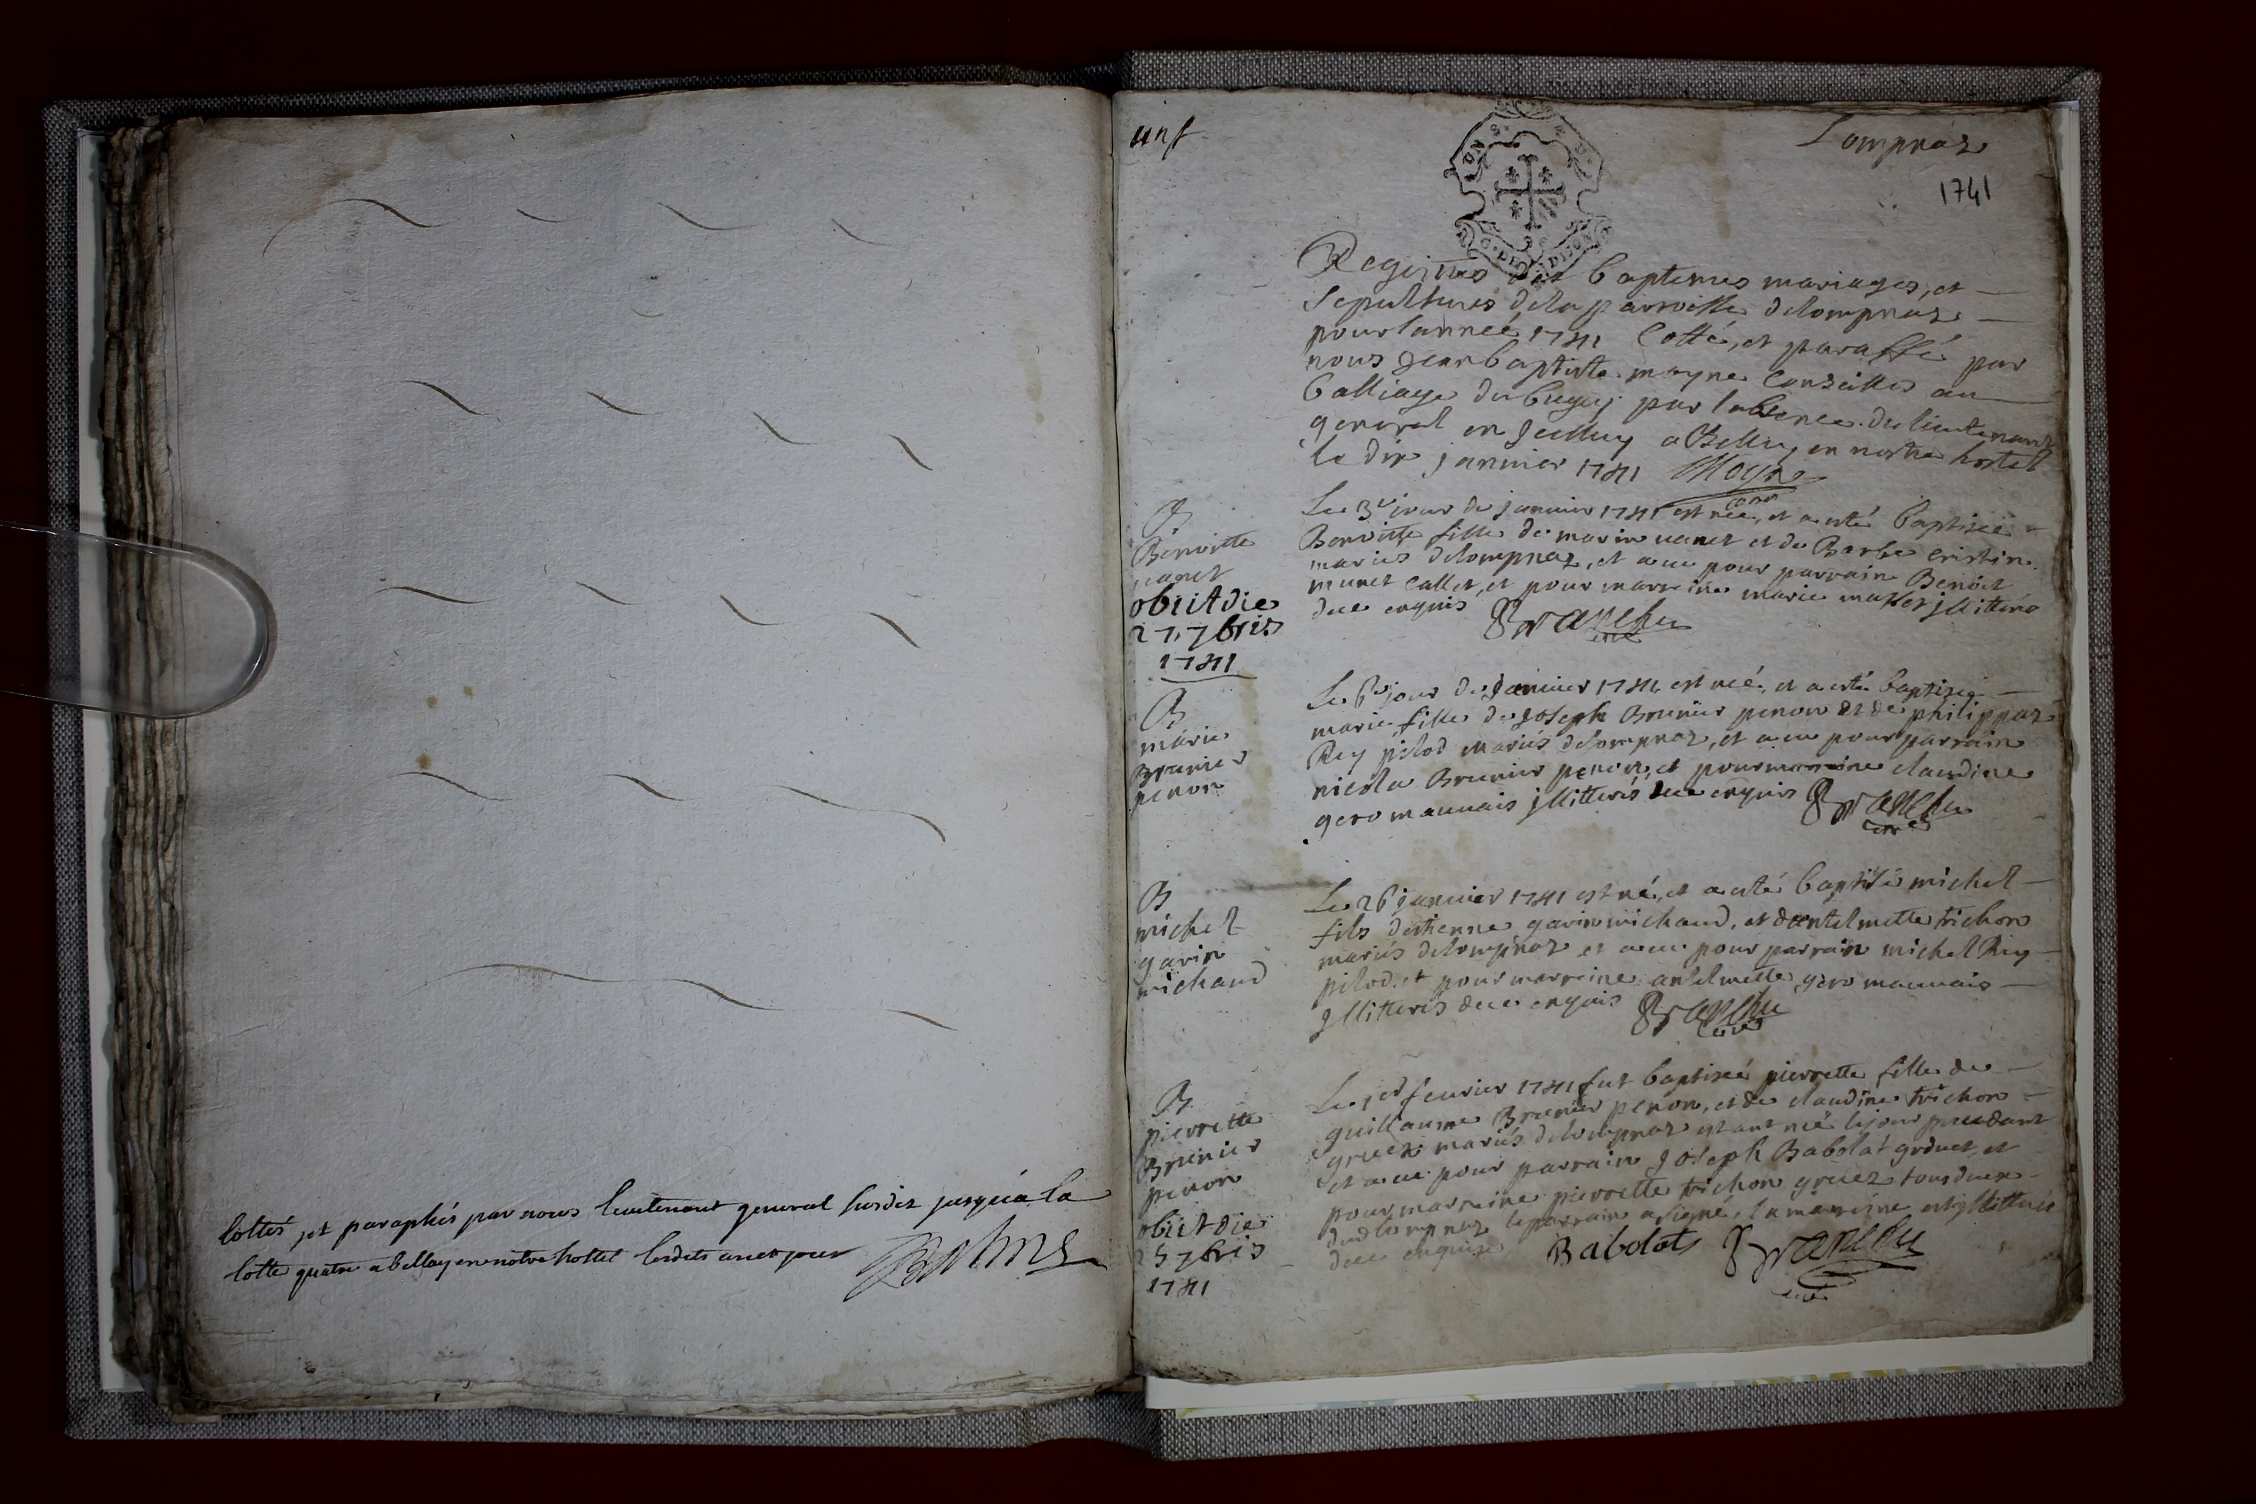 Cottés, et paraphés par nous lieutenant general susdit jusqu'a la
cotte quatre a bellay en notre hostel lesdits an et jour
un f
Lompnaz
1741
Registres des baptemes mariages, et
sepultures dela parroisse delompnaz
pour lanneé 1741 Cotté, et paraffé par
nous jean baptiste moyne Conseiller au
balliage du bugey par labsence du lieutenant
general en a Belley en nostre hostel
le dix janvier 1741 Moyne
B
Benoitte
vanet
obiit die
27, 7bris
1741
Le 3e jour de janvier 1741 est née, et a esté baptiseé
Benoitte fille de marin vanet et de Barbe cristin
mariés delompnaz, et a eu pour parrain Benoit
munet Callet, et pour marreine marie jllitterés
de ce enquis Branche
curé
B
marie
Brunier
penon
Le 6e jour de janvier 1741 est neé, et a esté baptiseé
marie, fille de joseph Brunier penon et de philippaz
Rey pilod mariés delompnaz, et a eu pour parrain
nicola Brunier penon, et pour marreine claudine
gero mauvais jllitterés de ce enquis Branche
curé
B
michel
gavin
michaud
Le 26 janvier 1741 est né, et a esté baptisé michel
fils detienne gavin michaud, et dantelmette trichon
mariés delompnaz et a eu pour parrain michel Rey
pilod. et pour marreine antelmette gero mauvais
jllitterés de ce enquis Branche
curé
B
pierrette
Brunier
penon
obiit die
25 7bris
1741
Le 1er fevrier 1741 fut baptiseé pierrette fille de
guillaume Brunier penon, et de claudine trichon
gruez mariés delompnaz estant neé le jour precedant
et a eu pour parrain joseph Babolat et
pour marreine pierrette trichon gruez tous deux
dud lompnaz le parrain a signé, la marreine est jllitterée
de ce enquise Babolat Branche
curé